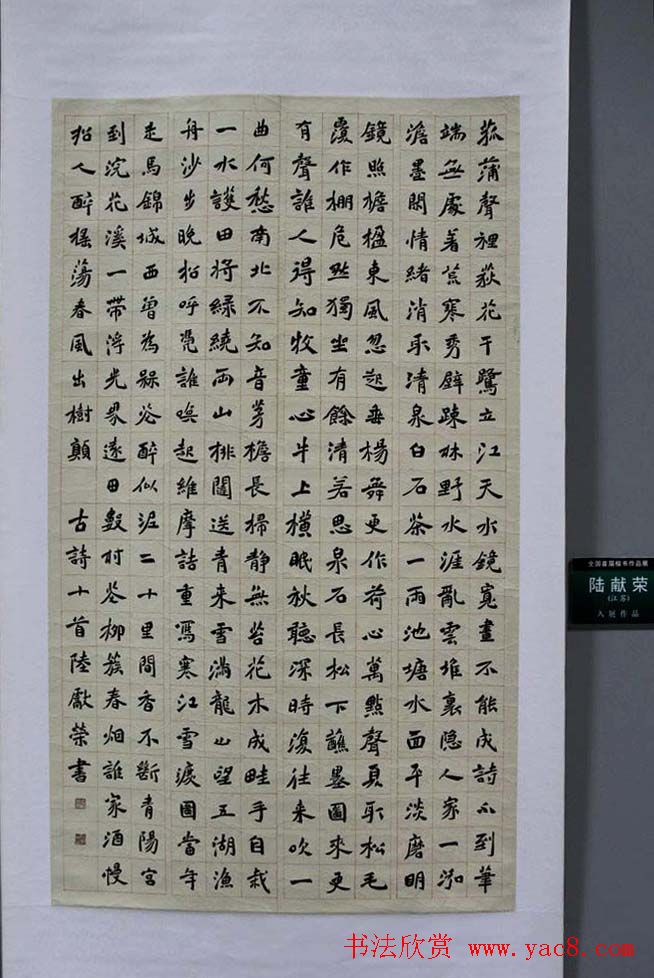 菰蒲聲裡荻花干鷺立江天水鏡寬畫不能成詩不到筆
端無處著荒寒秀壁疎林野水涯亂雲堆裏隐人家一泓
澹墨閑情緒消受清泉白石茶一雨池塘水面平淡磨明
鏡照檐楹東風忽起垂楊舞更作荷心萬點聲頁取松毛
覆作棚危坐獨坐有餘清若思泉石長松下蘸墨圖來更
有聲誰人得知牧童心牛上橫眠秋聽深時復往來吹一
曲何愁南北不知音茅檐長掃靜無苔花木成畦手自栽
一水護田將綠繞兩山排闥送青来雪滿龍山望五湖漁
舟沙步晚招呼凭誰喚起維摩詰重寫寒江雪淚圖當年
走馬錦城西曾為梅花醉似泥二十里間香不斷青陽宮
到浣花溪一帶浮光眾遠田數村花柳簇春烟誰家酒幔
招人醉摇蕩春風出樹顛 古詩十首陸獻榮書
全国首届楷书作品展
陆献荣
(江苏)
入展作品
书法欣赏 www.yac8.com